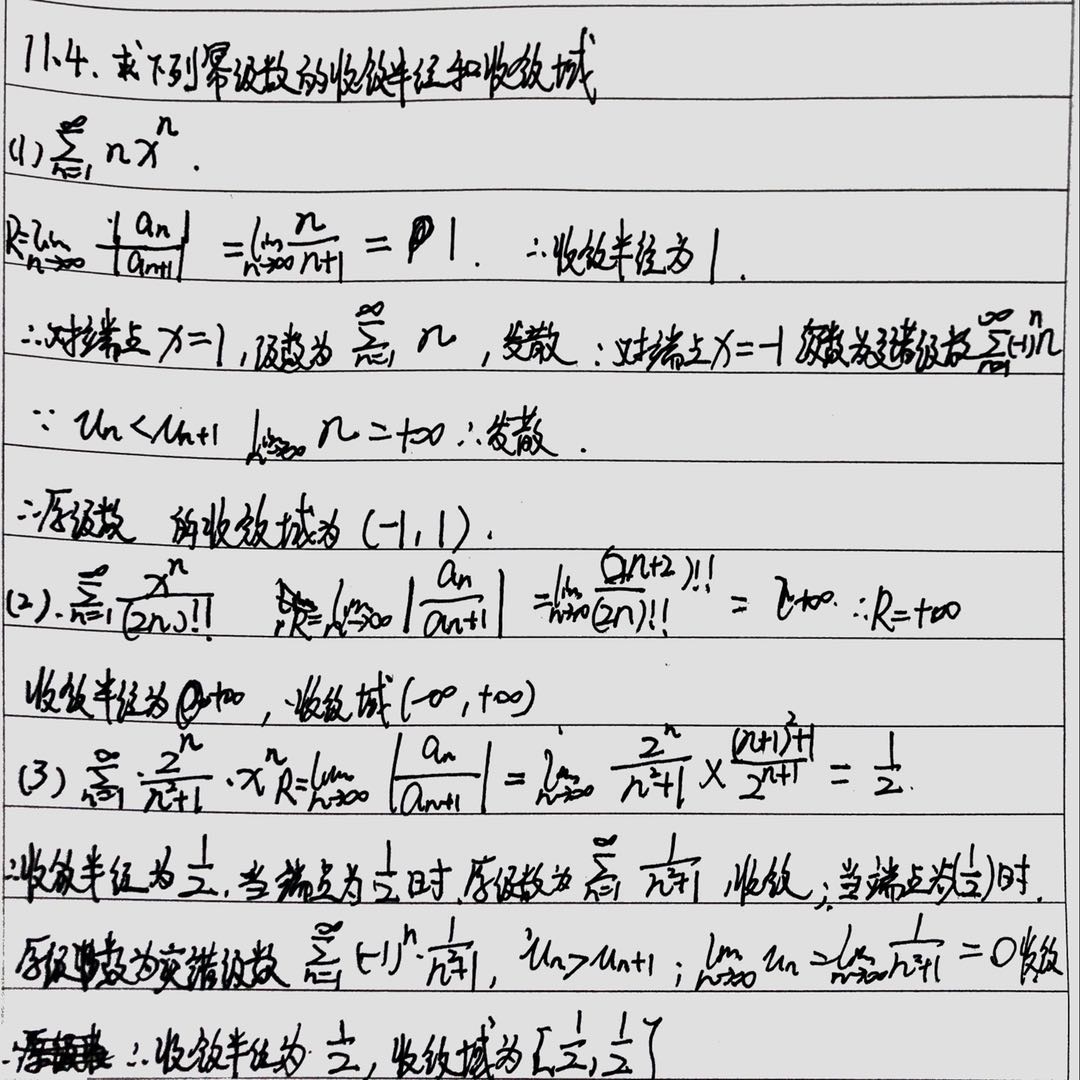 11.4. 求下列幂级数的收敛半径和收敛域
(1) \sum_{n=1}^{\infty} n x^n .
R = \lim_{n→∞} \frac{|a_n|}{|a_{n+1}|} = \lim_{n→∞} \frac{n}{n+1} = 1. ∴收敛半径为1.
∴对端点 x=1, 级数为 \sum_{n=1}^{∞} n, 发散; 对端点 x=-1 级数为交错级数 \sum_{n=1}^{∞} (-1)^n n
∵ u_n < u_{n+1} \lim_{n→∞} n = +∞ ∴发散.
∴原级数 的收敛域为 (-1, 1).
(2). \sum_{n=1}^{∞} \frac{x^n}{(2n)!!} ∴R = \lim_{n→∞} |\frac{a_n}{a_{n+1}}| = \lim_{n→∞} \frac{(2n+2)!!}{(2n)!!} = +∞. ∴R=+∞
收敛半径为+∞, 收敛域(-∞, +∞)
(3) \sum_{n=1}^{∞} \frac{2^n}{n^2+1} · x^n R = \lim_{n→∞} |\frac{a_n}{a_{n+1}}| = \lim_{n→∞} \frac{2^n}{n^2+1} × \frac{(n+1)^2+1}{2^{n+1}} = \frac{1}{2}.
∴收敛半径为\frac{1}{2}. 当端点为\frac{1}{2}时, 原级数为 \sum_{n=1}^{∞} \frac{1}{n^2+1}, 收敛; 当端点为(-\frac{1}{2})时.
原级数为交错级数 \sum_{n=1}^{∞} (-1)^n · \frac{1}{n^2+1}, u_n > u_{n+1}; \lim_{n→∞} u_n = \lim_{n→∞} \frac{1}{n^2+1} = 0 收敛
∴收敛半径为 \frac{1}{2}, 收敛域为 [-\frac{1}{2}, \frac{1}{2}]